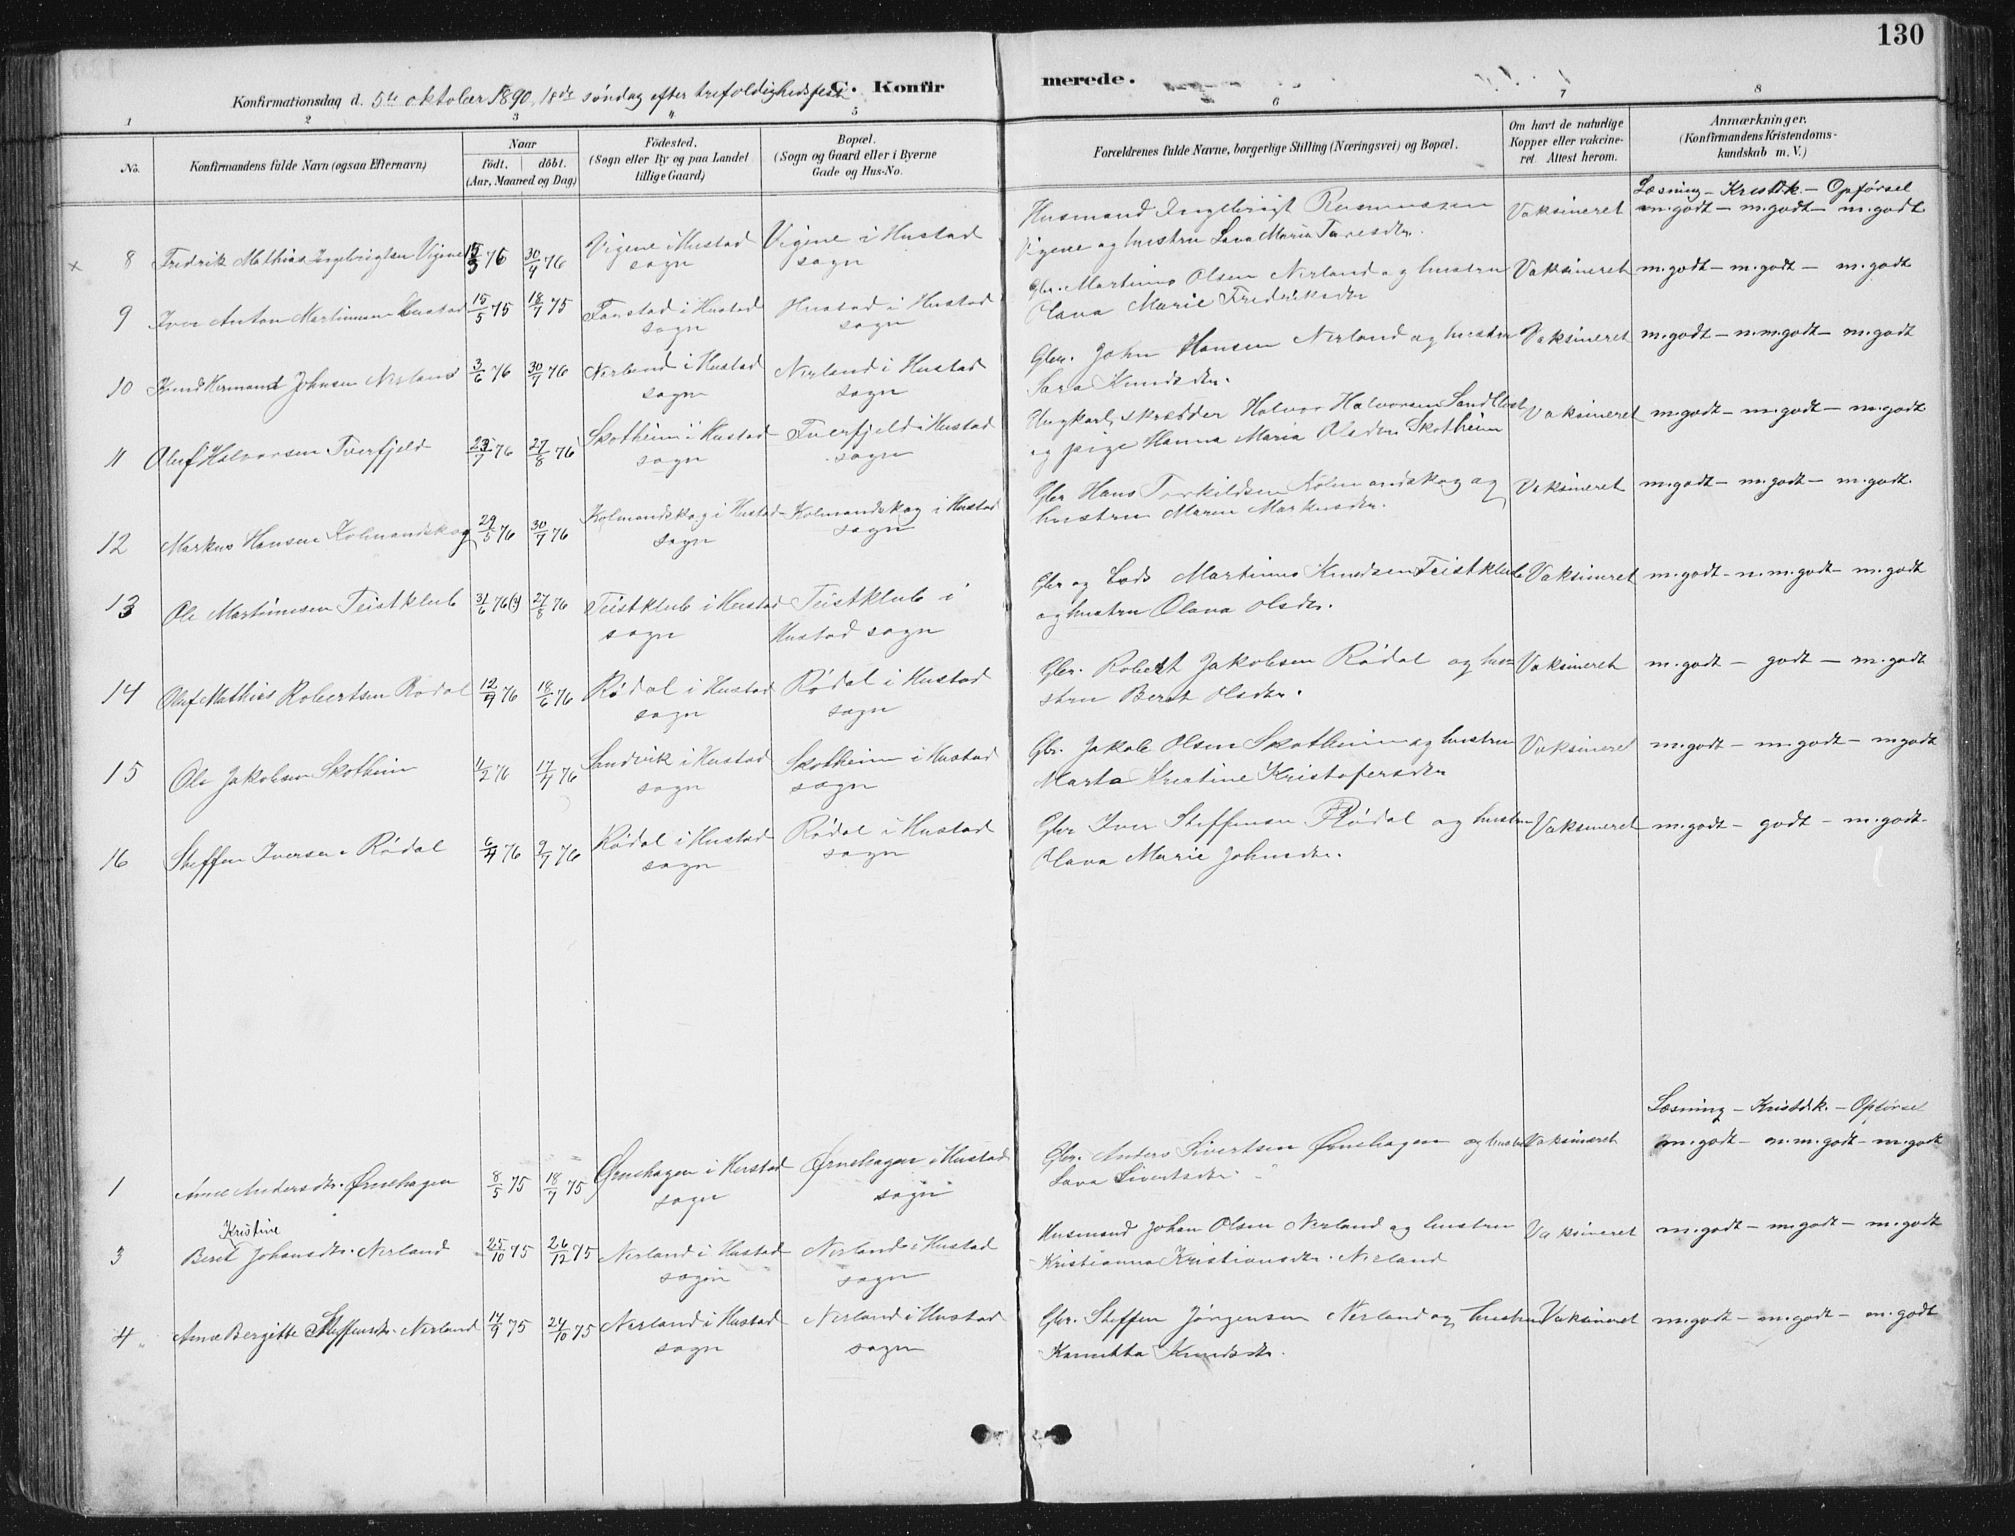 130
C. Konfirmerede.
Konfirmationsdag d. 5te oktober 1890, 18de søndag efter trefoldighedsfest
1 2 3 4 5 6 7 8
No.
Konfirmandens fulde Navn (ogsaa Efternavn)
Naar
født. | döbt.
(Aar, Maaned og Dag)
Födested.
(Sogn eller By og paa Landet
tillige Gaard)
Bopæl.
(Sogn og Gaard eller i Byerne
Gade og Hus-No.
Forældrenes fulde Navne, borgerlige Stilling (Næringsvei) og Bopæl.
Om havt de naturlige
Kopper eller vakcine-
ret. Attest herom.
Anmærkninger.
(Konfirmandens Kristendoms-
kundskab m. V.)
Læsning – Kristdk. – Opførsel
Husmand Ingebrigt Rasmussen Vaksineret m.godt – m.godt – m.godt
× 8 Fredrik Mathias Ingebrigtsen Vigene 15/3 76 30/4 76 Vigene i Hustad Vigene i Hustad
sogn sogn Vigene og hustru Lava Maria
9 Iver Anton Martinusen Hustad 15/5 75 18/7 75 Farstad i Hustad Hustad i Hustad Gbr. Martinus Olsen Nerland og hustru Vaksineret m.godt – m.godt – m.godt
sogn sogn Olava Marie Fredriksdtr
10 Knud Hermand Johnsen Nerland 3/6 76 30/7 76 Nerland i Hustad Nerland i Hustad Gbr. John Hansen Nerland og hustru Vaksineret m.godt – n.m.godt – m.godt
sogn sogn Sara Knudsdtr.
11 Oluf Halvorsen Tverfjeld 23/7 76 27/8 76 Skotheim i Hustad Tverfjeld i Hustad Ungkarl, skrædder Halvor Halvorsen Sandblest Vaksineret m.godt – m.godt – m.godt
sogn sogn og pige Hanna Maria Olsdtr Skotheim
12 Markus Hansen Kolmandskog 29/5 76 30/7 76 Kolmandskog i Hustad Kolmandskog i Hustad Gbr Hans Torkildsen Kolmandskog og Vaksineret m.godt – m.godt – m.godt.
sogn sogn hustru Maren Markusdtr.
13 Ole Martinusen Teistklub 31/6 76(?) 27/8 76 Teistklub i Hustad Teistklub i Gbr og Lods Martinus Knudsen Teistklub Vaksineret m.godt – n.m.godt – m.godt
sogn Hustad sogn og hustru Olava Olsdtr.
14 Oluf Mathias Robertsen Rødal 12/4 76 18/6 76 Rødal i Hustad Rødal i Hustad Gbr. Robert Jakobsen Rødal og hu- Vaksineret m.godt – godt – m.godt
sogn sogn stru Beret Olsdtr.
15 Ole Jakobsen Skotheim 11/2 76 17/4 76 Sandvik i Hustad Skotheim i Hustad Gbr. Jakob Olsen Skotheim og hustru Vaksineret m.godt – m.godt – m.godt
sogn sogn Marta Kristine Kristofersdtr
16 Steffen Iversen Rødal 6/4 76 9/7 76 Rødal i Hustad Rødal i Hustad Gbr Iver Steffensen Rødal og hustru Vaksineret m.godt – godt – m.godt.
sogn sogn Olava Marie Johnsdtr.
Læsning – Kristdk. – Opførsel
1 Anne Andersdtr. Ørnehagen 8/5 75 18/7 75 Ørnehagen i Hustad Ørnehagen i Hustad Gbr. Anders Sivertsen Ørnehagen og hustru Vaksineret m.godt – n.m.godt – m.godt
sogn sogn Lava Sivertsdtr.
Kristine
3 Beret Johansdtr. Nerland 25/10 75 26/12 75 Nerland i Hustad Nerland i Hustad Husmand Johan Olsen Nerland og hustru Vaksineret m.godt – m.godt – m.godt
sogn sogn Kristianna Kristiansdtr. Nerland
4 Anne Bergitte Steffensdtr. Nerland 17/9 75 24/10 75 Nerland i Hustad Nerland i Hustad Gbr. Steffen Jørgensen Nerland og hustru Vaksineret m.godt – m.godt – m.godt
sogn sogn Knudsdtr.